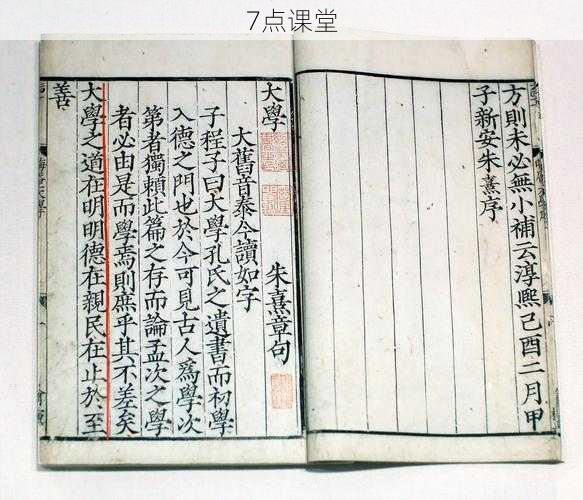 7点课堂
方則未必無小補云淳熙己酉二月甲
子新安朱熹序
大學
朱熹章句
大舊音泰今讀如字
子程子曰大學孔氏之遺書而初學
入德之門也於今可見古人爲學次
第者獨賴此篇之存而論孟次之學
者必由是而學焉則庶乎其不差矣
大學之道在明明德在親民在止於至
善